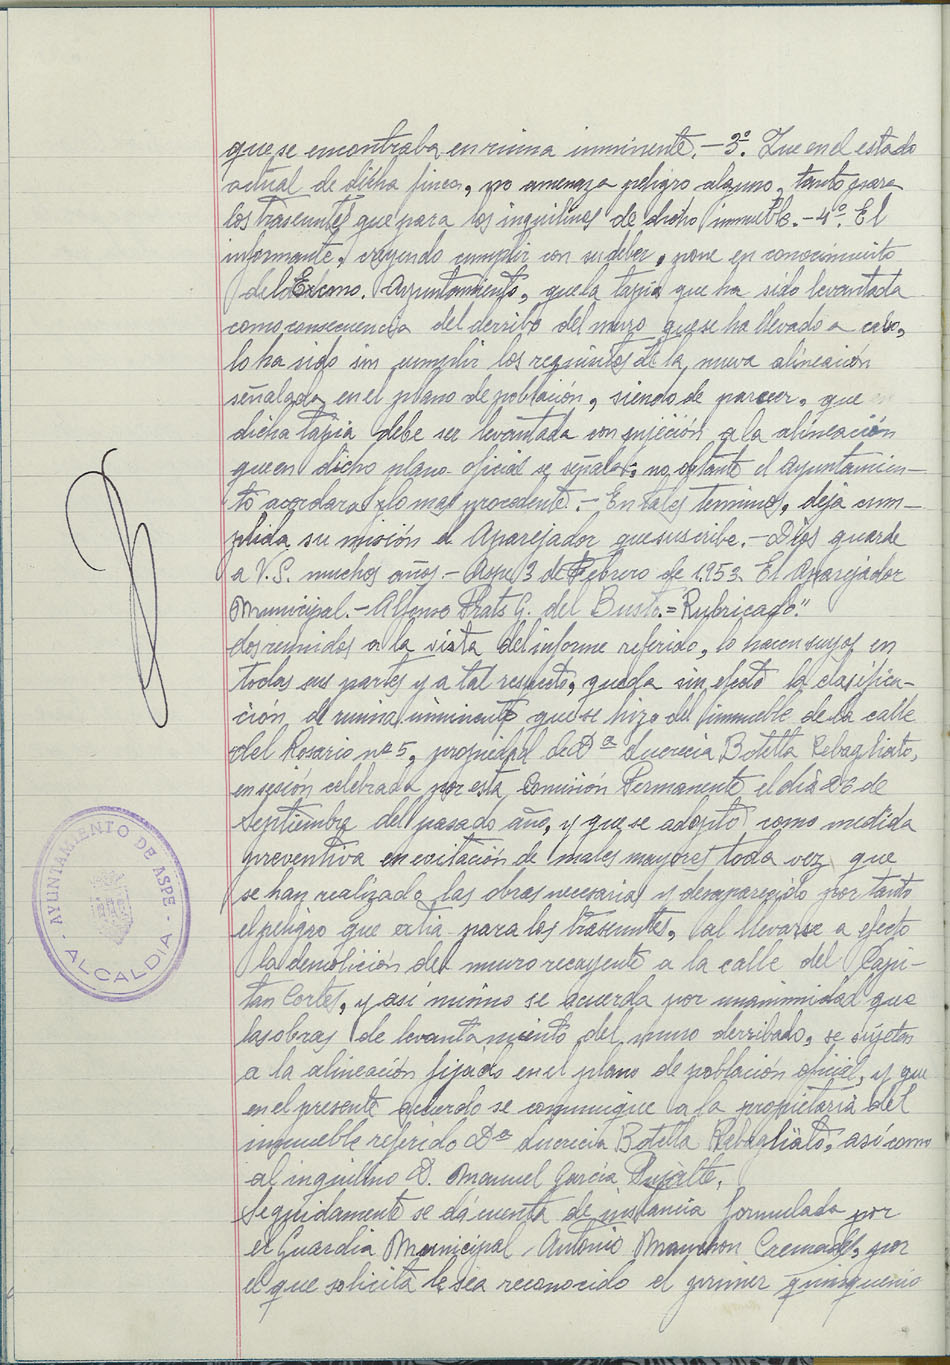 que se encontraba en ruina inminente.- 3º. Que en el estado
actual de dicha finca, no amenaza peligro alguno, tanto para
los traseuntes que para los inquilinos de dicho inmueble.- 4º. El
informante, creyendo cumplir con su deber, pone en conocimiento
del Excmo. Ayuntamiento, que la tapia que ha sido levantada
como consecuencia del derribo del muro que se ha llevado a cabo,
lo ha sido sin cumplir los requisitos de la nueva alineación
señalada en el plano de población, siendo de parecer, que
dicha tapia debe ser levantada con sujeción a la alineación
que en dicho plano oficial se señala; no obstante el Ayuntamien-
to acordara lo mas procedente.- En tales terminos, deja cum-
plida su misión el Aparejador que suscribe.- Dios guarde
a V.S. muchos años.- Aspe 3 de Febrero de 1.953. El Aparejador
Municipal.- Alfonso Prats G. del Busto.= Rubricado."
Los reunidos a la vista del informe referido, lo hacen suyos en
todas sus partes y a tal respecto, queda sin efecto la clasifica-
ción de ruina inminente que se hizo del inmueble de la calle
del Rosario nº 5, propiedad de Dª Lucrecia Botella Rebagliato,
en sesión celebrada por esta Comisión Permanente el día 26 de
Septiembre del pasado año, y que se adoptó como medida
preventiva en evitación de males mayores toda vez que
se han realizado las obras necesarias y desaparecido por tanto
el peligro que exitia para los traseuntes, al llevarse a efecto
la demolición del muro recayente a la calle del Capi-
tan Cortes, y así mismo se acuerda por unanimidad que
las obras de levantamiento del muro derribado, se sujeten
a la alineación fijada en el plano de población oficial, y que
en el presente acuerdo se comunique a la propietaria del
inmueble referido Dª Lucrecia Botella Rebagliato, así como
al inquilino D. Manuel García Pujalte.
Seguidamente se dá cuenta de instancia formulada por
el Guardia Municipal Antonio Manchon Cremades, por
el que solicita le sea reconocido el primer quinquenio
AYUNTAMIENTO DE ASPE
- ALCALDIA -